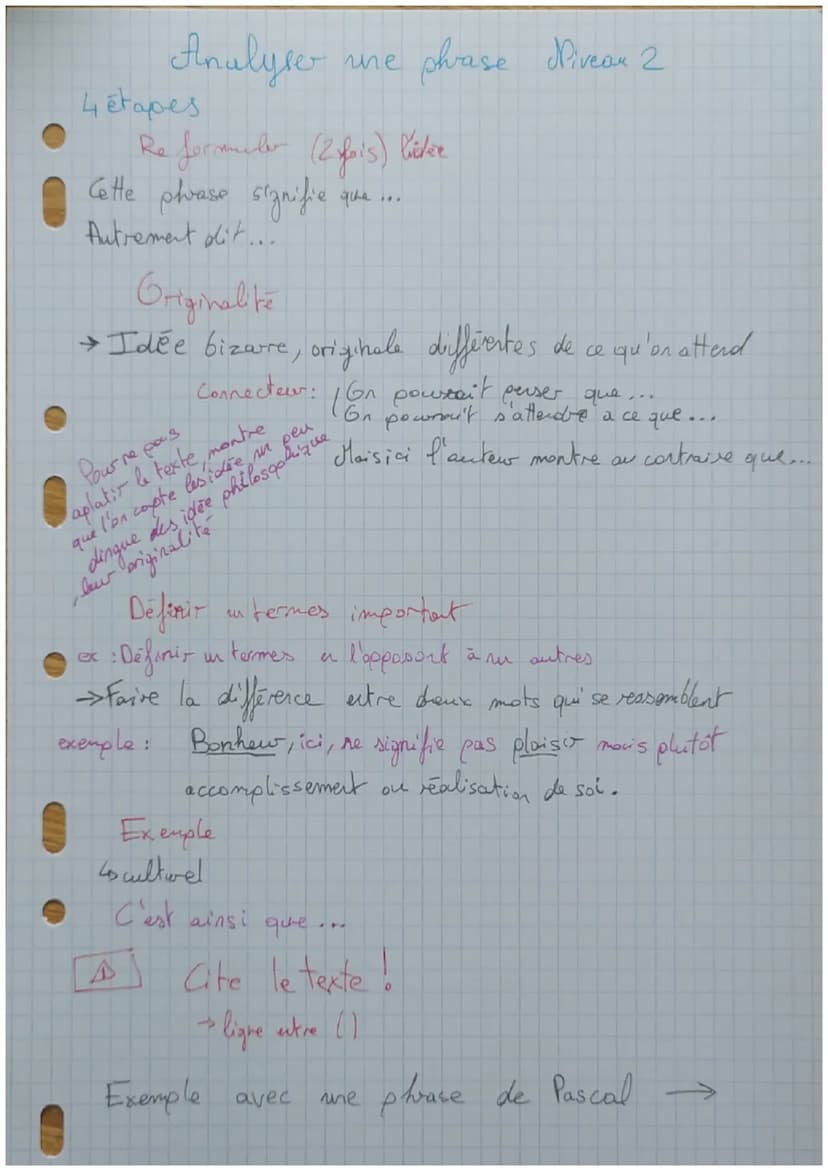 Analyser une phrase Niveau 2
4 étapes
Reformuler (2 fois) l'idée
Cette phrase signifie que ...
Autrement dit...
Originalité
→ Idée bizarre, originale différentes de ce qu'on attend
Connecteur: On pourrait penser que...
On pourrait s'attendre a ce que...
Mais ici l'auteur montre au contraire que...
Pour ne pas
aplatir le texte, montre
que l'on capte les idée un peu
dingue des idée philosophique
, leur originalité
Définir un termes important
ex : Définir un termes en l'opposant à un autres
→ Faire la différence entre deux mots qui se ressemblent
exemple : Bonheur, ici, ne signifie pas plaisir mais plutôt
accomplissement ou réalisation de soi.
Exemple
↳ culturel
C'est ainsi que ...
⚠ Cite le texte !
→ ligne entre ()
Exemple avec une phrase de Pascal →